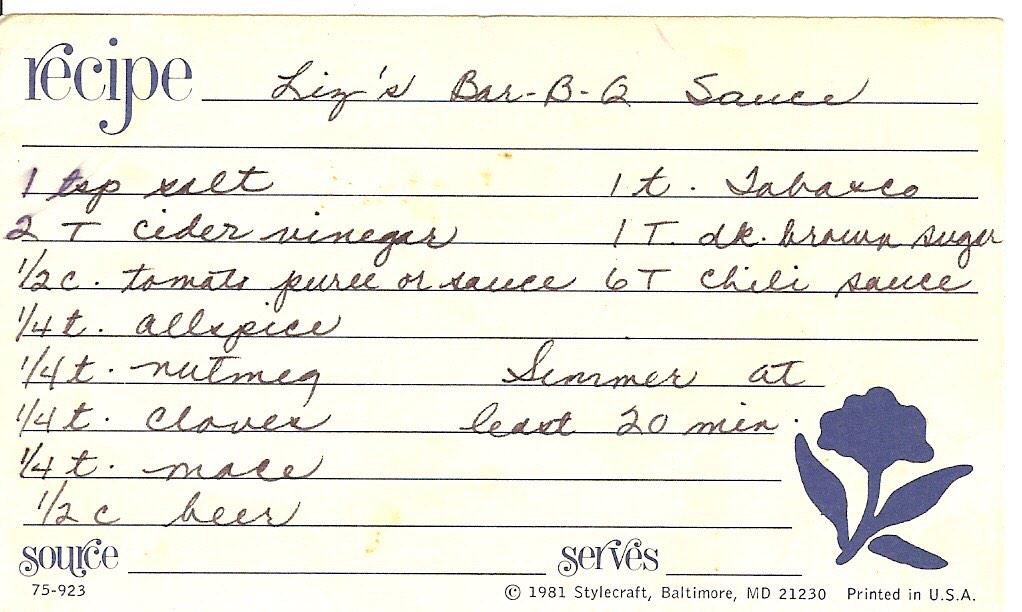 recipe Liz's Bar-B-Q Sauce
1 tsp salt 1 t. Tabasco
2 T cider vinegar 1 T. dk. brown sugar
1/2 c. tomato puree or sauce 6 T chili sauce
1/4 t. allspice
1/4 t. nutmeg Simmer at
1/4 t. cloves least 20 min.
1/4 t. mace
1/2 c beer
source serves
75-923 © 1981 Stylecraft, Baltimore, MD 21230 Printed in U.S.A.